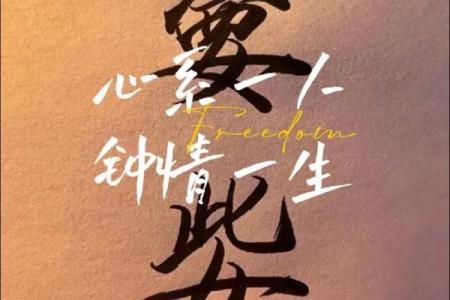 要
心系一人
Freedom
钟情一生
此